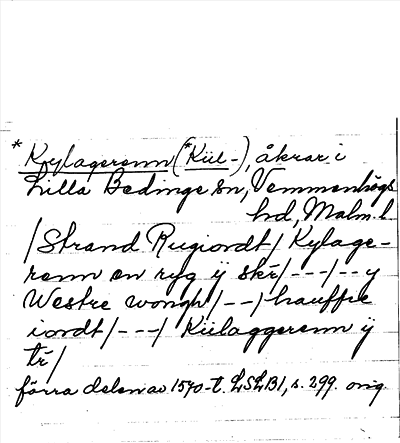 * Kylagerenn (*Kiil-), åkrar i
Lilla Bedinge sn, Vemmenhögs
hd, Malm. l.
/Strand Rugiordt/ Kylage-
renn en ryg ÿ skr/---/--y
Westre wongh/--/hauffre
iordt/---/ Kiilaggerenn ÿ
tr/
förra delen av 1570-t. LSLB1, s. 299. orig.